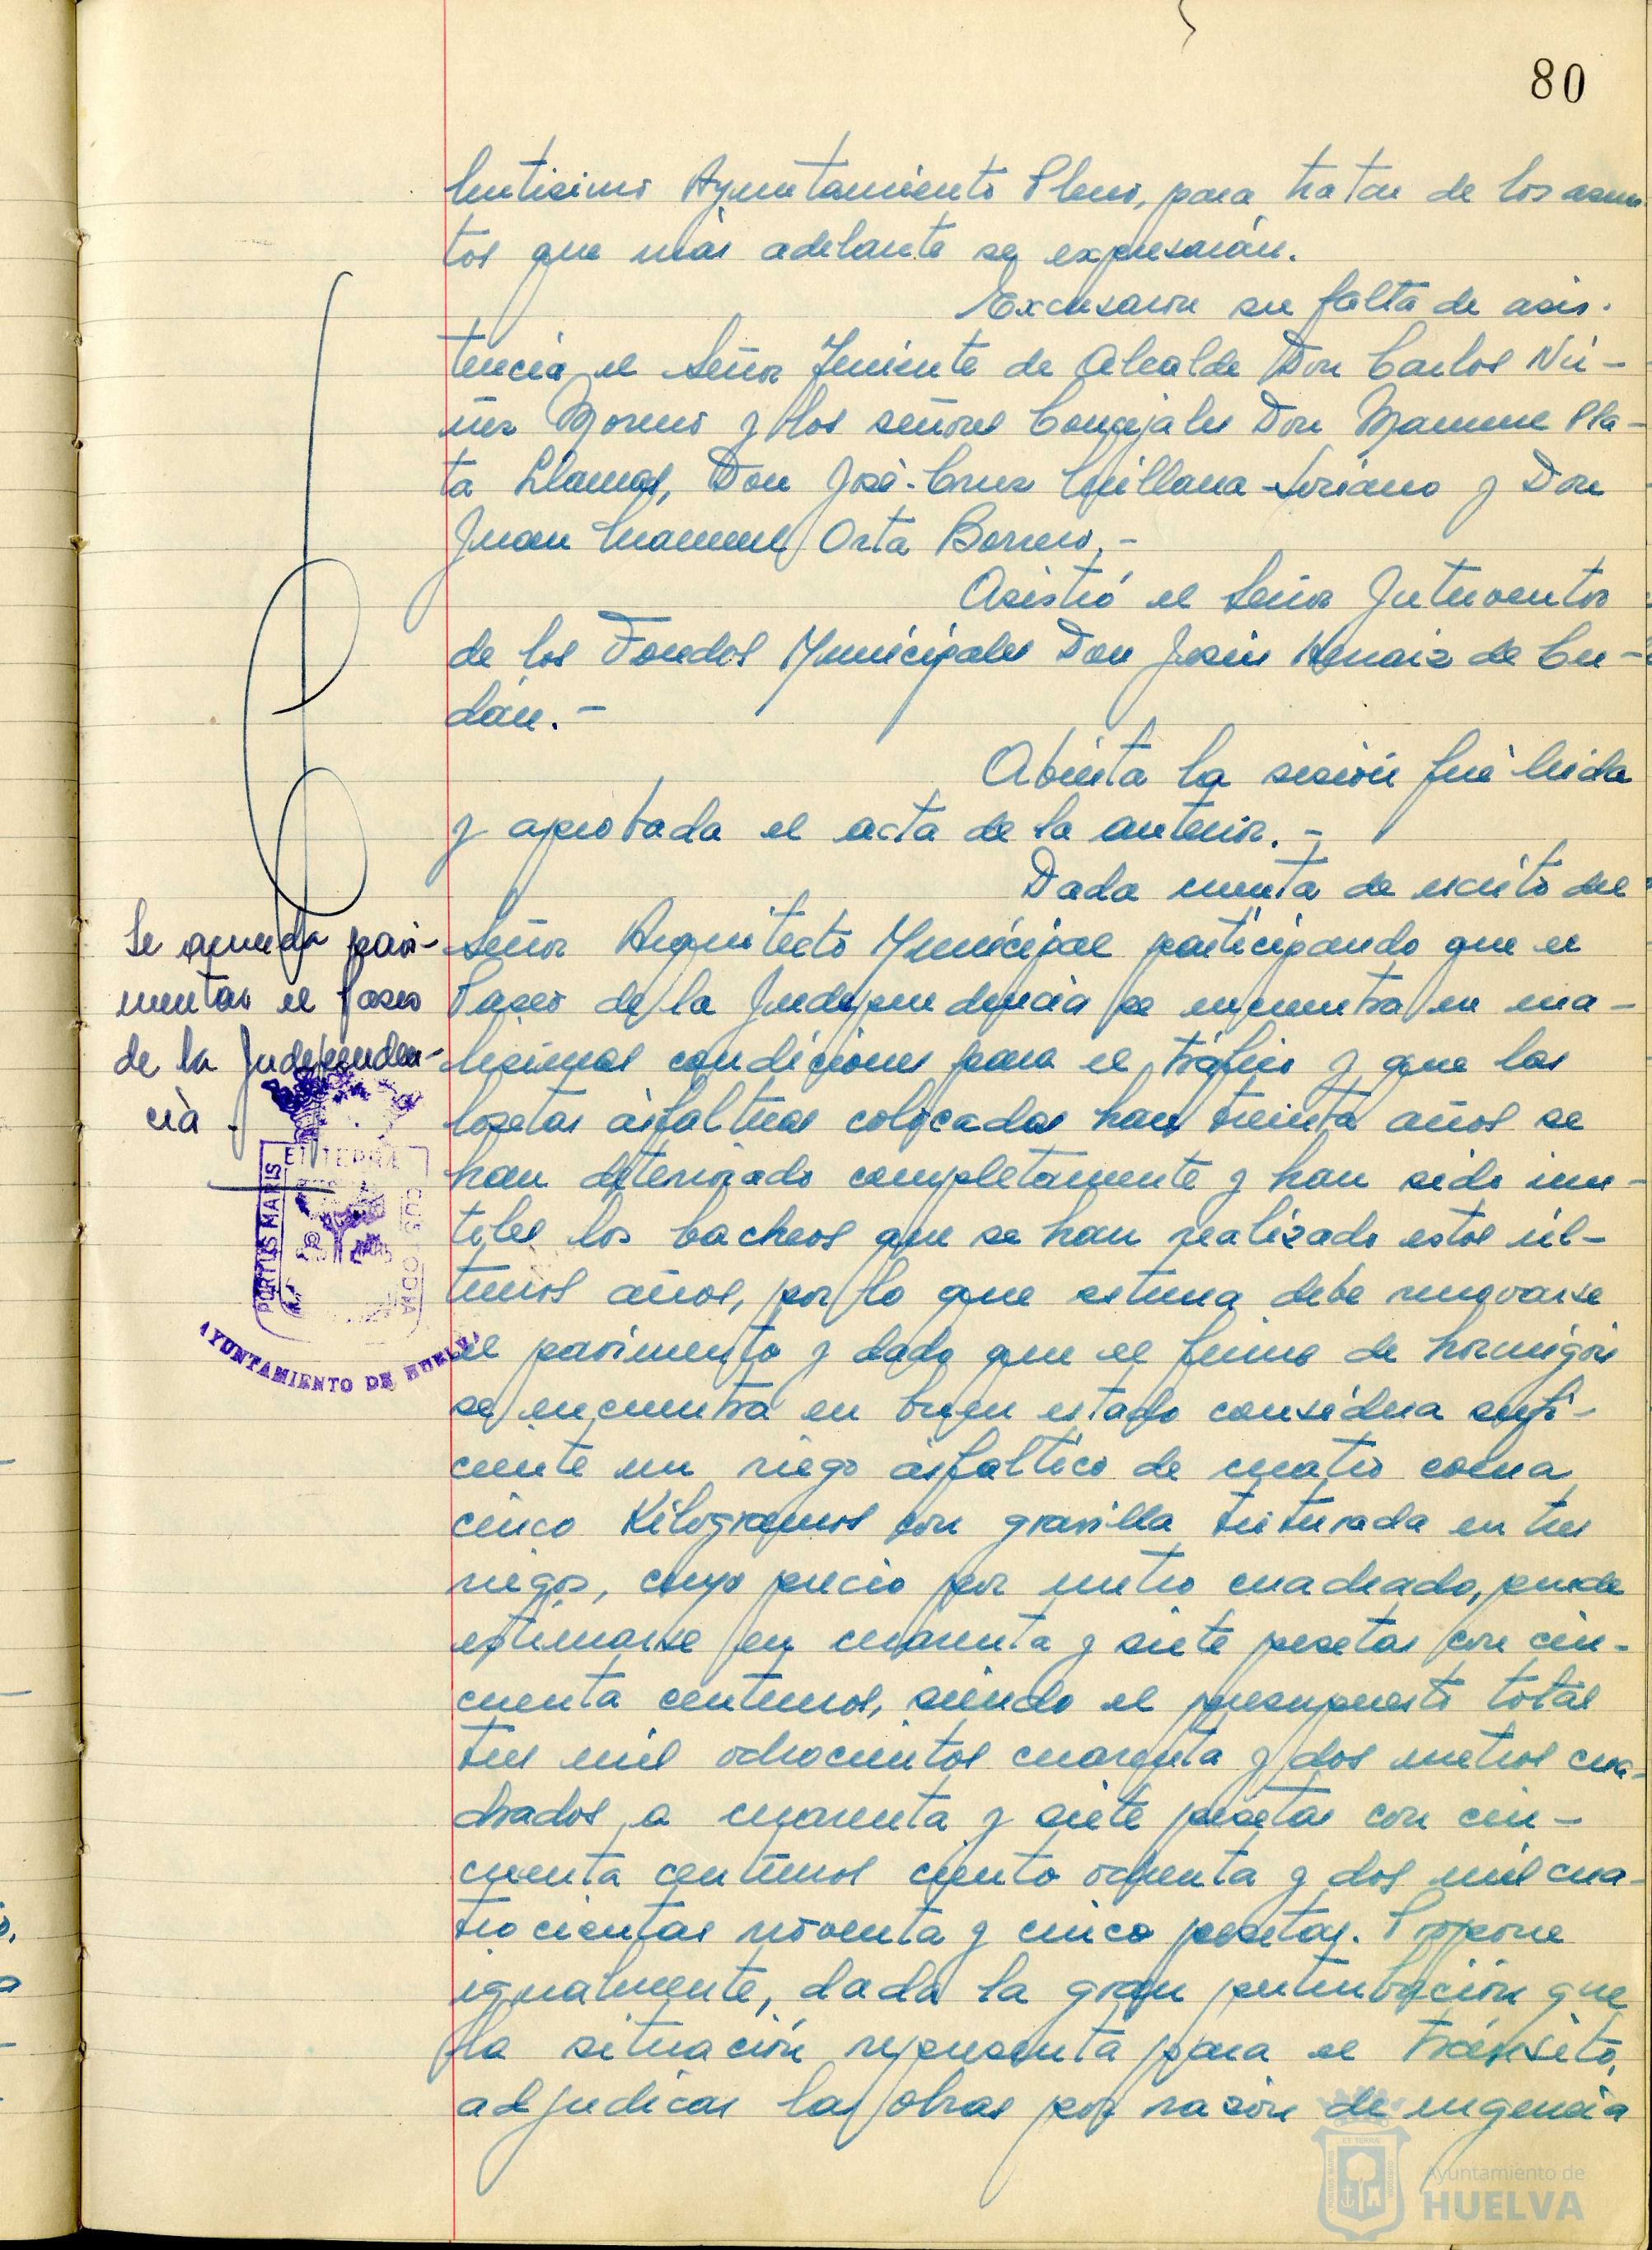 80
lentisimo Ayuntamiento Pleno, para tratar de los asun-
tos que más adelante se expresarán.
Excusaron su falta de asis-
tencia el Señor Teniente de Alcalde Don Carlos Nú-
ñez Moreno y los señores Concejales Don Manuel Pla-
ta Llamas, Don José-Cruz Quillana Soriano y Don
Juan Manuel Orta Borrero.-
Asistió el Señor Interventor
de los Fondos Municipales Don Jesús Henaiz de
dán.-
Abierta la sesión fué leida
y aprobada el acta de la anterior.-
Dada cuenta de escrito del
Señor Arquitecto Municipal participando que el
Paseo de la Independencia se encuentra en ma-
lisimas condiciones para el tráfico y que las
losetas asfalticas colocadas hace treinta años se
han deteriorado completamente y han sido inu-
tiles los bacheos que se han realizado estos úl-
timos años, por lo que estima debe renovarse
el pavimento y dado que el firme de hormigón
se encuentra en buen estado considera sufi-
ciente un riego asfáltico de cuatro coma
cinco Kilogramos con gravilla triturada en tres
riegos, cuyo precio por metro cuadrado, puede
estimarse en cuarenta y siete pesetas con cin-
cuenta centimos, siendo el presupuesto total
tres mil ochocientos cuarenta y dos metros cua-
drados a cuarenta y siete pesetas con cin-
cuenta centimos ciento ochenta y dos mil cua-
trocientas noventa y cinco pesetas. Propone
igualmente, dada la gran perturbación que
la situación representa para el tránsito,
adjudicar las obras por razón de urgencia
Se acuerda pavi-
mentar el Paseo
de la Independen-
cia.
ET TERRAE
PORTUS MARIS
CUSTODIA
AYUNTAMIENTO DE HUELVA
Ayuntamiento de
HUELVA